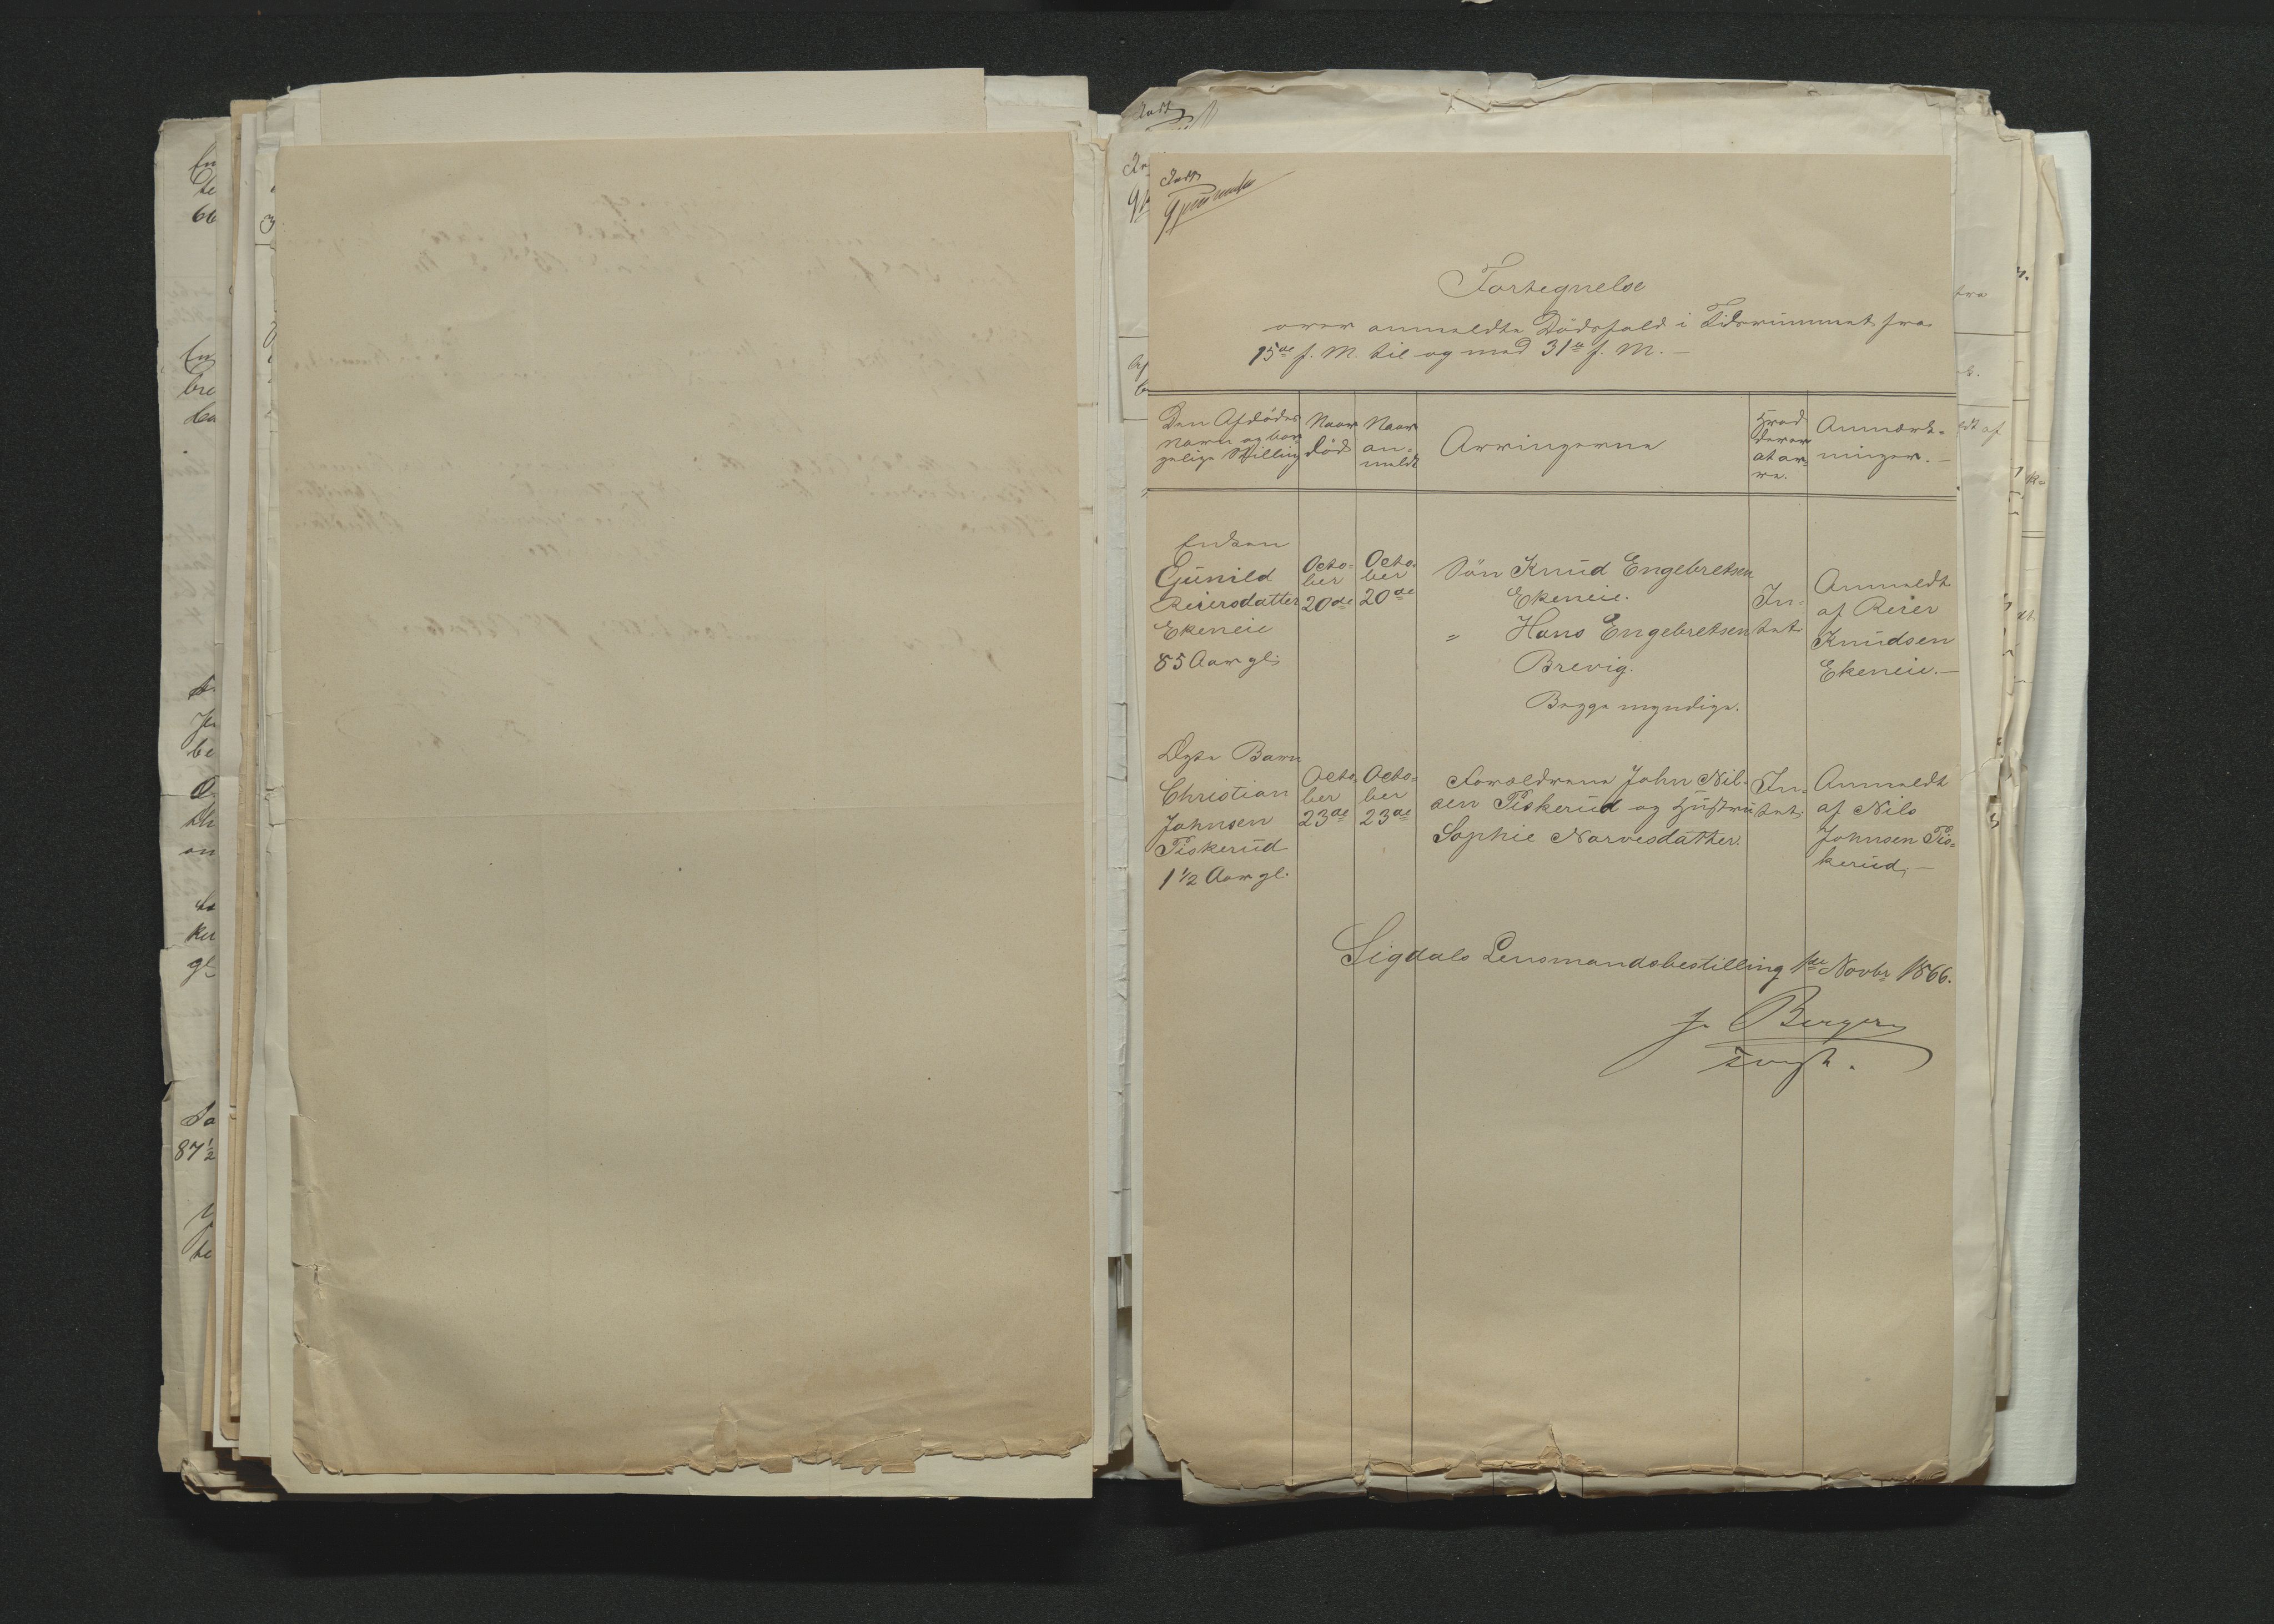 Fortegnelse
over anmeldte Dödsfald i Tidsrummet fra
15de f. M. til og med 31te f. M. —
Den Afdödes
Navn og bor-
gelige Stilling
Naar
död
Naar
an-
meldt
Arvingerne
Hvad
derer
at ar-
ve.
Anmærk-
ninger. —
Enken
Gunild
Reiersdatter
Ekeneie
85 Aar gl.
Octo-
ber
20de
Octo-
ber
20de
Sön Knud Engebretsen
Ekeneie.
" Hans Engebretsen
Brevig.
Begge myndige.
In-
tet.
Anmeldt
af Reier
Knudsen
Ekeneie. —
Ægte Barn
Christian
Johnsen
Piskerud
1 1/2 Aar gl.
Octo-
ber
23de
Octo-
ber
23de
Forældrene John Nil-
sen Piskerud og Hustru
Sophie Narvesdatter.
In-
tet.
Anmeldt
af Nils
Johnsen Pis-
kerud. —
Sigdals Lensmandsbestilling 1ste Novbr 1866.
J. Berger